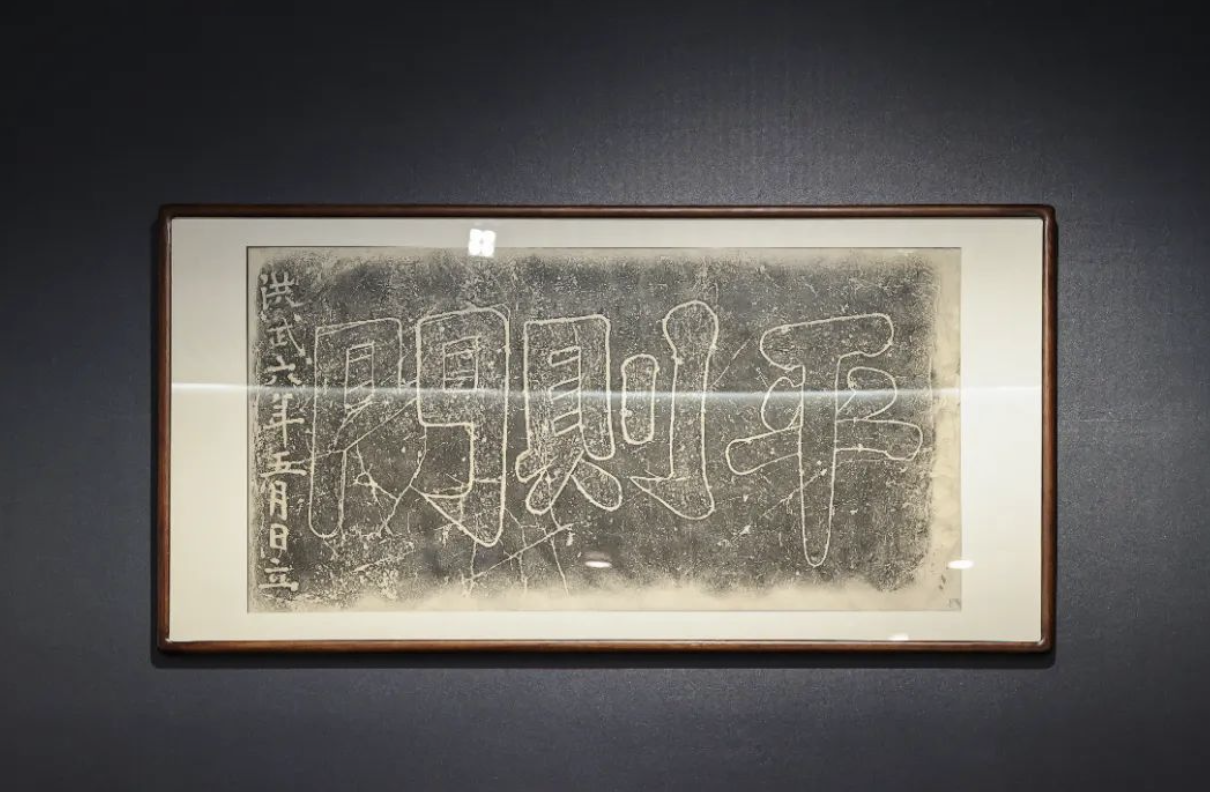 平則門
洪武六年五月日立